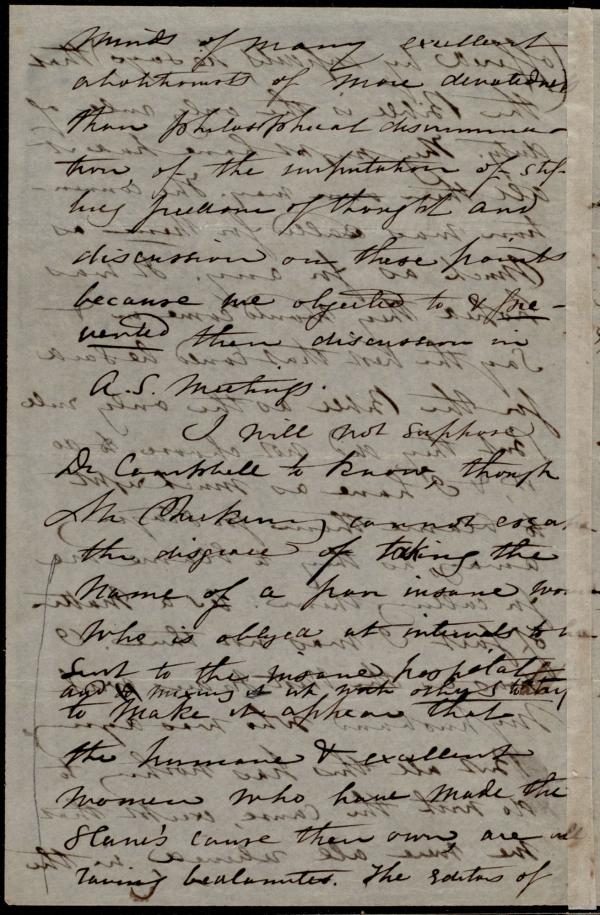 minds of many excellent
abolitionists of more devotedness
than philosophical discrimina-
tion of the imputation of stif-
ling freedom of thought and
discussion on these points
because we objected to & pre-
vented their discussion in
A.S. Meetings.
I will not suppose
Dr Campbell to know, though
Mr cannot escape
the disgrace of taking the
name of a poor insane wom
who is obliged at intervals to be
sent to the insane hospital,
and mixing it up with other
to make it appear that
the humane & excellent
women who have made the
Slave's cause their own are all
raving bedlamites. The Editors of